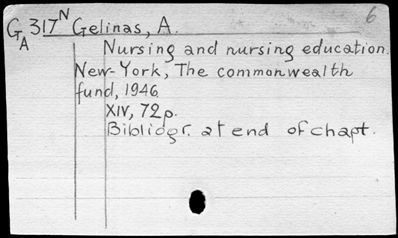 6
GA 317N Gelinas, A.
Nursing and nursing education.
New-York, The commonwealth
fund, 1946.
XIV, 72p.
Bibliogr. at end of chapt.